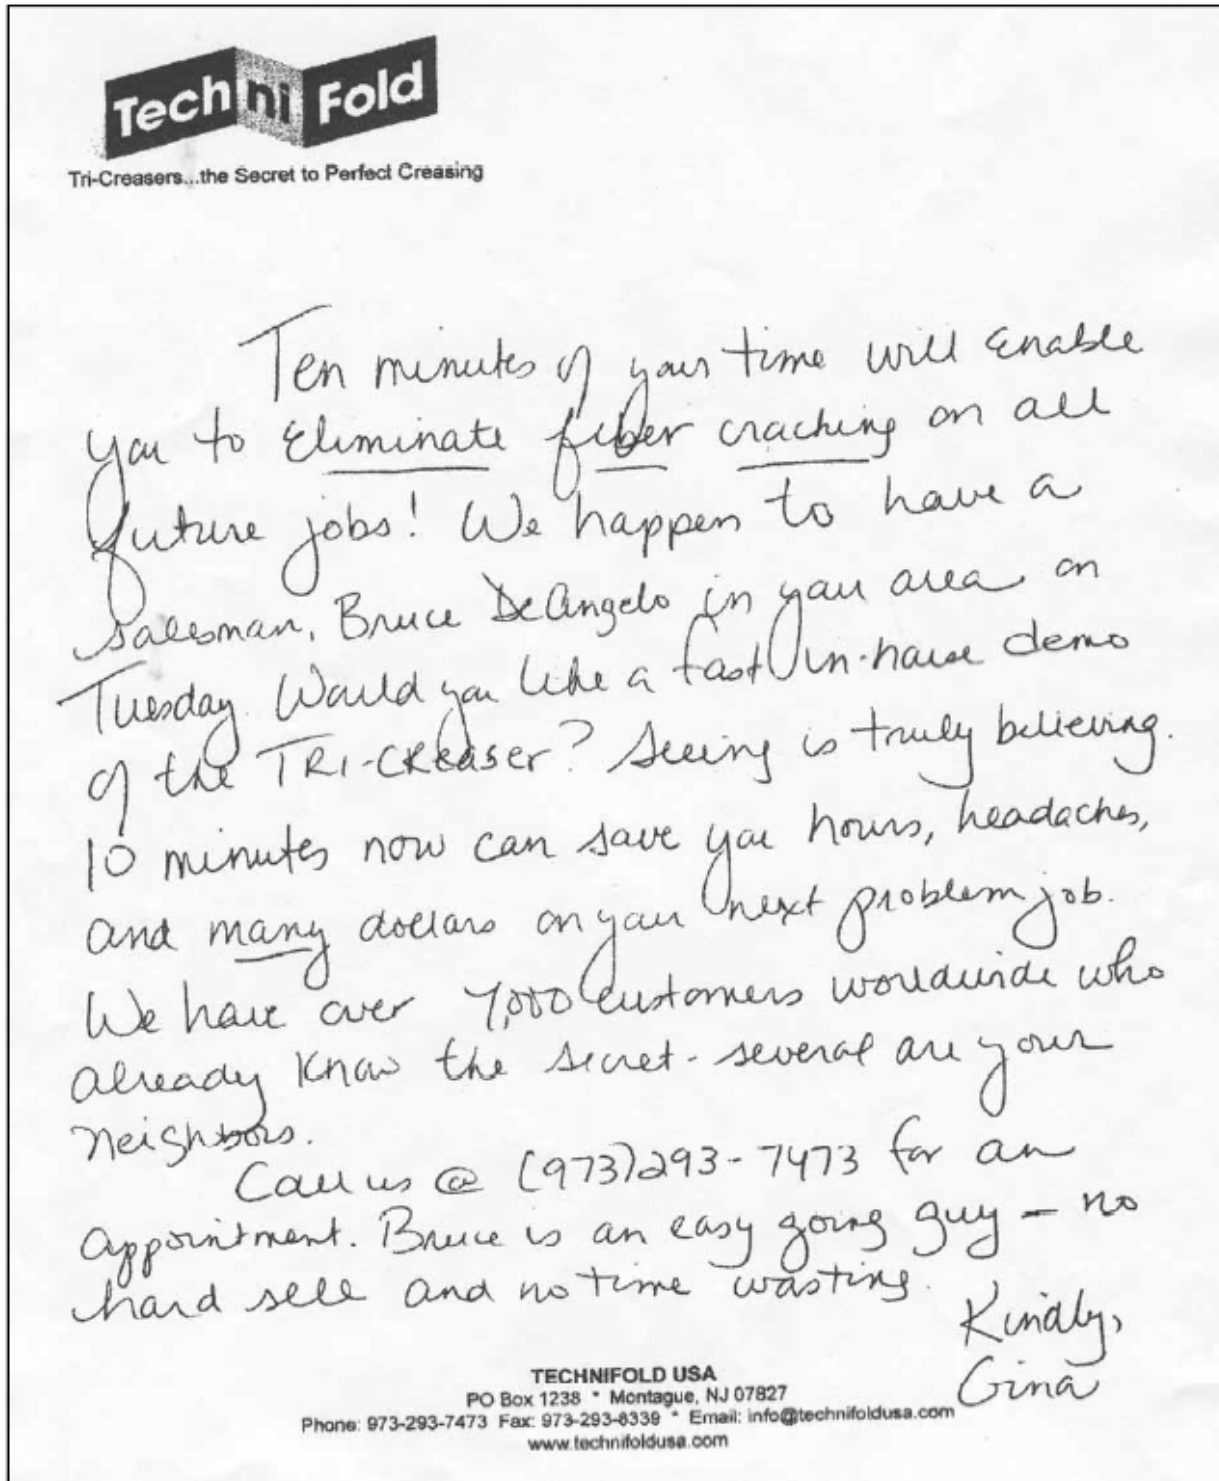 Tech ni Fold
Tri-Creasers...the Secret to Perfect Creasing
Ten minutes of your time will enable
you to Eliminate fiber cracking on all
future jobs! We happen to have a
salesman, Bruce DeAngelo in your area on
Tuesday. Would you like a fast in-house demo
of the TRI-CREASER? Seeing is truly believing.
10 minutes now can save you hours, headaches,
and many dollars on your next problem job.
We have over 7,000 customers worldwide who
already know the secret - several are your
neighbors.
Call us @ (973)293-7473 for an
appointment. Bruce is an easy going guy - no
hard sell and no time wasting.
Kindly,
Gina
TECHNIFOLD USA
PO Box 1238 * Montague, NJ 07827
Phone: 973-293-7473 Fax: 973-293-8339 * Email: info@technifoldusa.com
www.technifoldusa.com